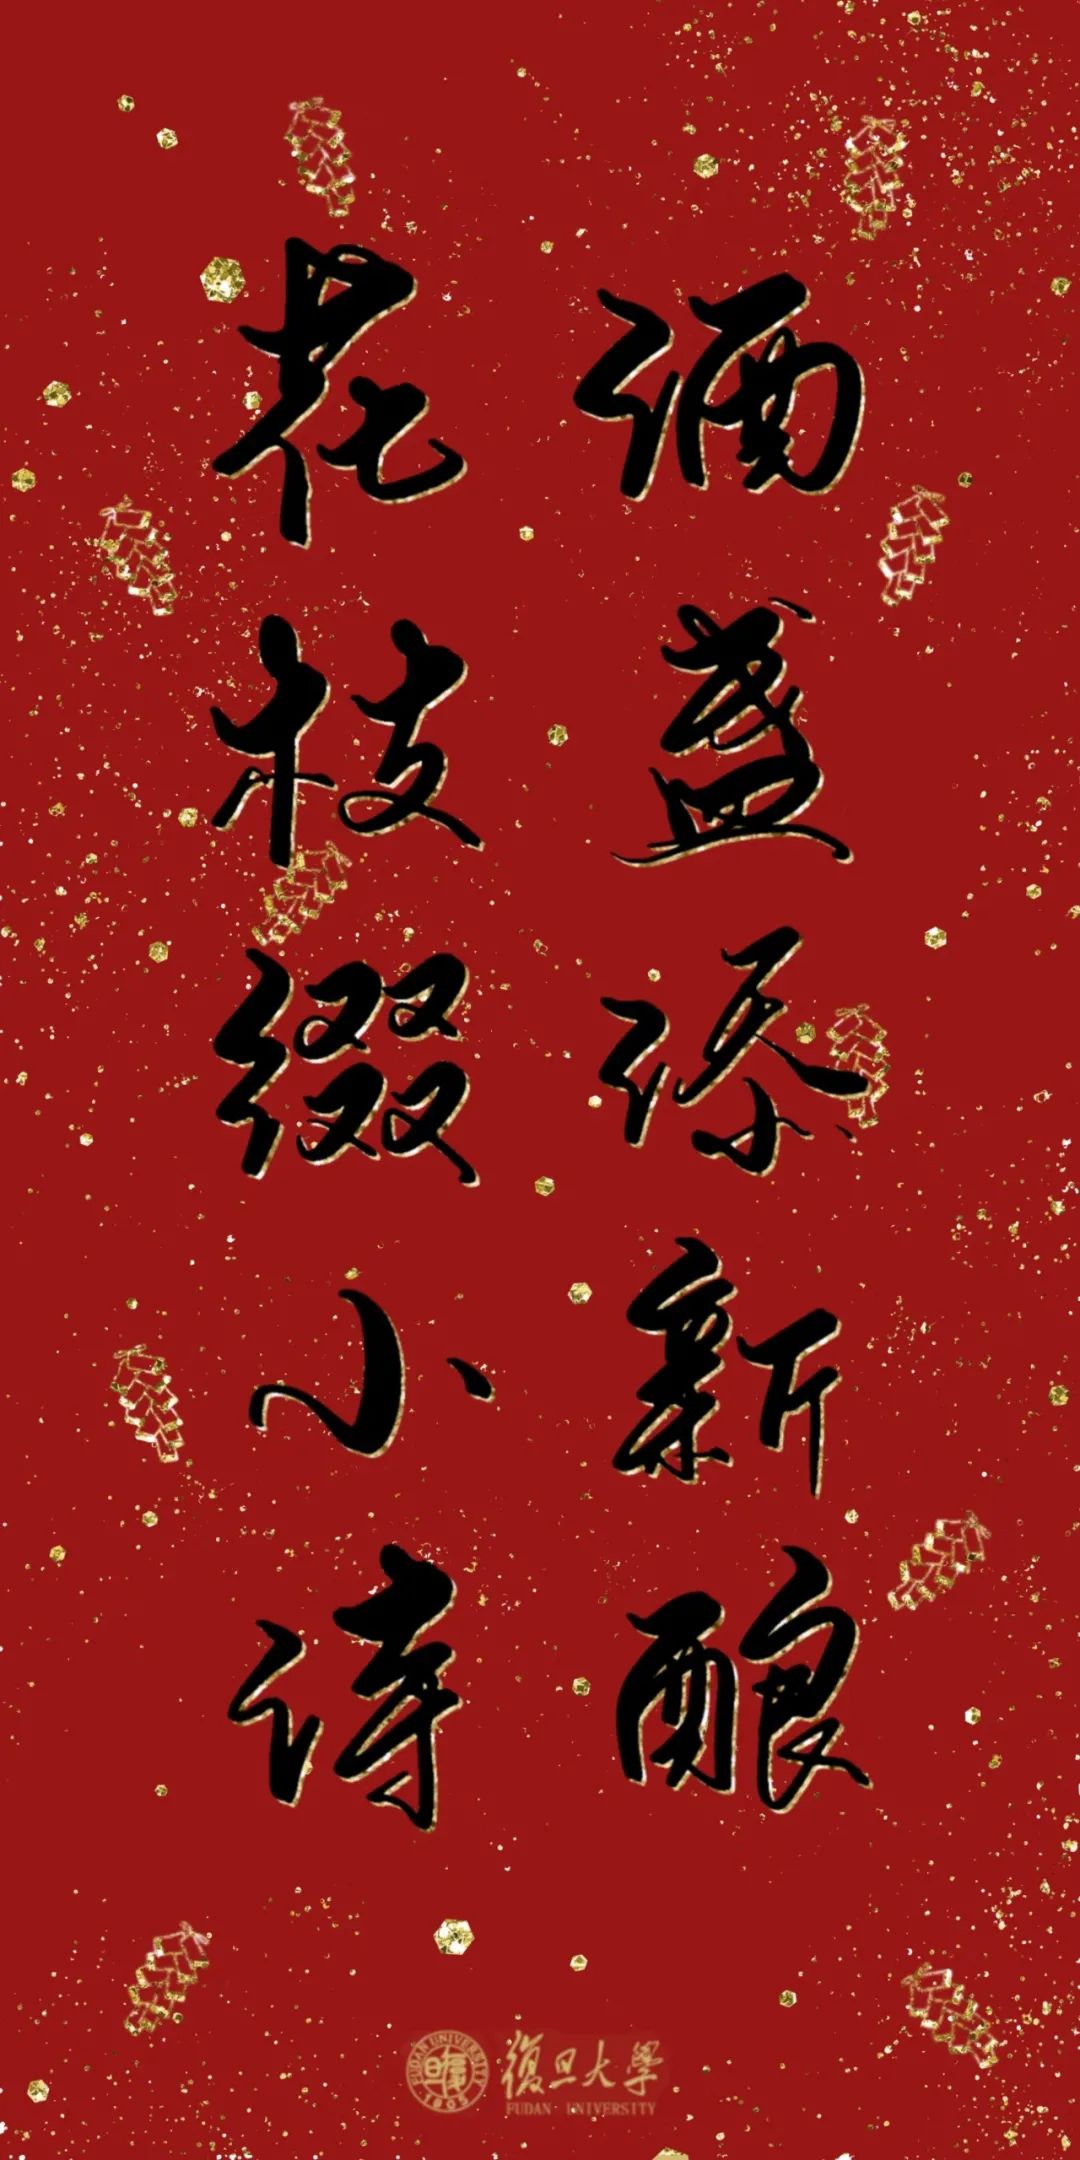 酒盏添新酿
花枝缀小诗
復旦大學
FUDAN UNIVERSITY
FUDAN UNIVERSITY
1905